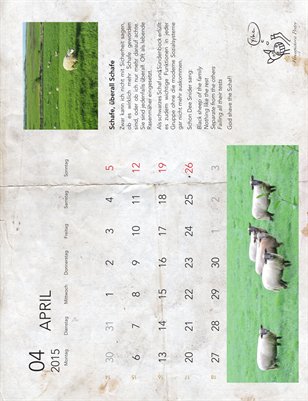 04
APRIL
2015
Montag Dienstag Mittwoch Donnerstag Freitag Samstag Sonntag
30 31 1 2 3 4 5
6 7 8 9 10 11 12
13 14 15 16 17 18 19
20 21 22 23 24 25 26
27 28 29 30 1 2 3
Schafe, überall Schafe
Zwar kann ich nicht mit Sicherheit sagen,
ob es wirklich mehr Schafe geworden
sind, oder ob ich nur mehr darauf achte.
Sind jedenfalls überall. Oft als lebende
Rasenmäher eingesetzt.
Als schwarzes Schaf und Sündenbock erfüllt
es zudem wichtige Funktionen in jeder
Gruppe ohne die moderne Sozialsysteme
gar nicht mehr auskommen.
Schon Dee Snider sang:
Black sheep of the family
Nothing like the rest
Separate from the others
Failing all their tests
God share the Schaf!